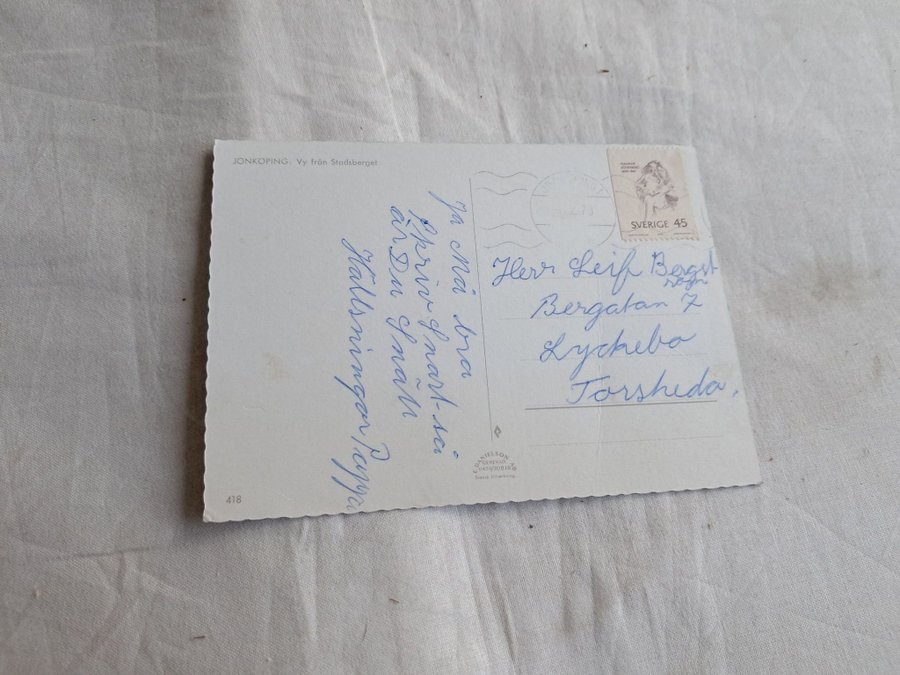 JÖNKÖPING: Vy från Stadsberget
SVERIGE 45
Herr Leif Bergst
röm
Bergatan 7
Lyckebo
Torsheda,
Ja Må bra
Skriv Snart-så
är Du Snäll
Hällsningar Pappa
F. DANIELSON AB
418